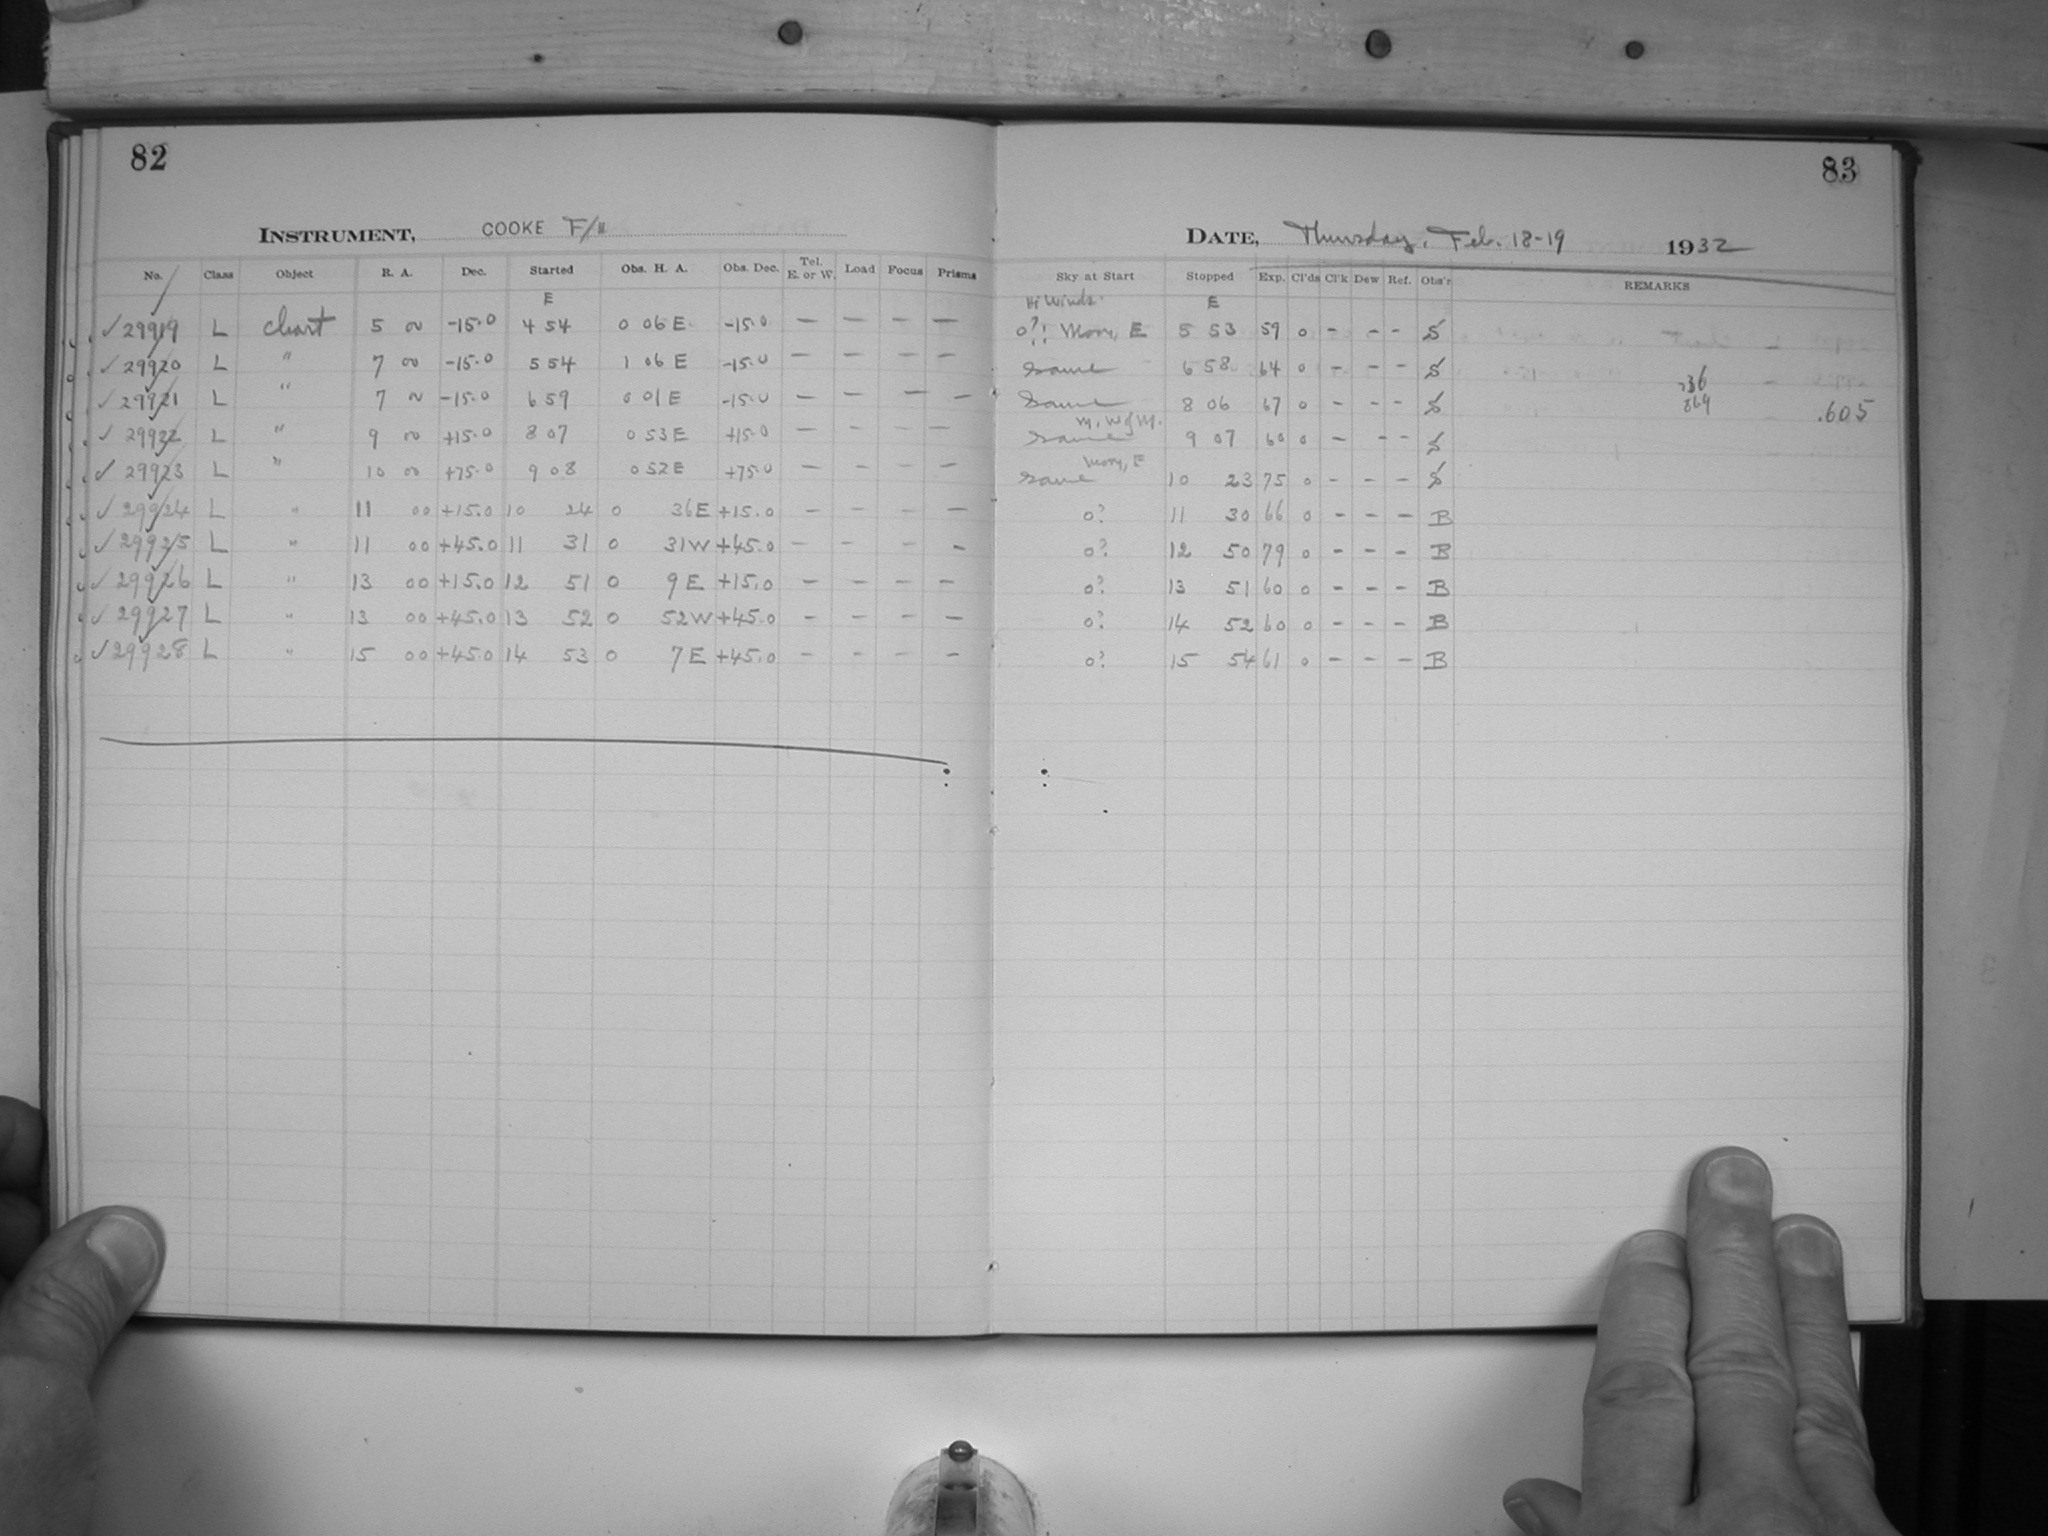 82
83
INSTRUMENT, COOKE F/11
DATE, Thursday, Feb. 18-19 1932
No. Class Object R. A. Dec. Started Obs. H. A. Obs. Dec. Tel. E. or W. Load Focus Prisms Sky at Start Stopped Exp. Cl'ds Cl'k Dew Ref. Obs'r REMARKS
E Hi Winds. E
✓ 29919 L Chart 5 00 -15.0 4 54 0 06 E -15.0 — — — — o?! Moon, E 5 53 59 0 - - - S
✓ 29920 L " 7 00 -15.0 5 54 1 06 E -15.0 — — — — same 6 58 64 0 - - - S
✓ 29921 L " 7 00 -15.0 6 59 0 01 E -15.0 — — — — same 8 06 67 0 - - - S 864 .605
M. W of M.
✓ 29922 L " 9 00 +15.0 8 07 0 53 E +15.0 — — — — same 9 07 60 0 - - - S
Moon, E
✓ 29923 L " 10 00 +75.0 9 08 0 52 E +75.0 — — — — same 10 23 75 0 - - - S
✓ 29924 L " 11 00 +15.0 10 24 0 36 E +15.0 — — — — o? 11 30 66 0 - - - B
✓ 29925 L " 11 00 +45.0 11 31 0 31 W +45.0 — — — — o? 12 50 79 0 - - - B
✓ 29926 L " 13 00 +15.0 12 51 0 9 E +15.0 — — — — o? 13 51 60 0 - - - B
✓ 29927 L " 13 00 +45.0 13 52 0 52 W +45.0 — — — — o? 14 52 60 0 - - - B
✓ 29928 L " 15 00 +45.0 14 53 0 7 E +45.0 — — — — o? 15 54 61 0 - - - B